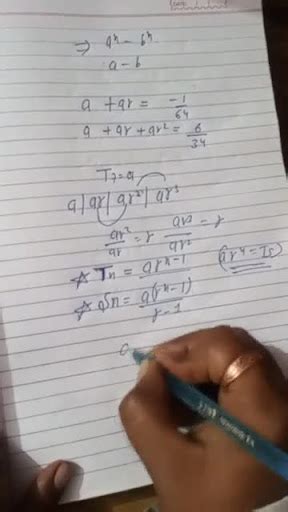 ⇒ aⁿ - bⁿ
a - b
a + ar = -1/64
a + ar + ar² = 6/34
T₁ = a
a | ar | ar² | ar³
ar²/ar = r ar³/ar² = r
☆ Tn = arⁿ⁻¹ (ar⁴ = T₅)
☆ Sn = a(rⁿ - 1)/r - 1